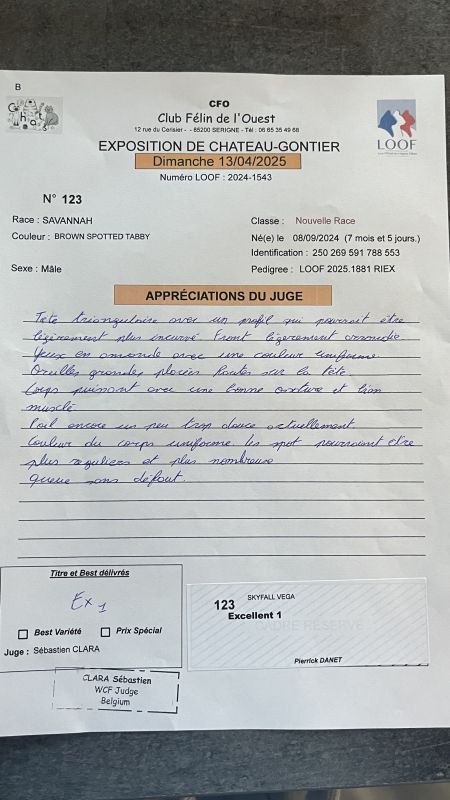 B
CFO
Club Félin de l'Ouest
12 rue du Cerisier - - 85200 SERIGNE - Tél : 06 65 35 49 68
LOOF
EXPOSITION DE CHATEAU-GONTIER
Dimanche 13/04/2025
Numéro LOOF : 2024-1543
N° 123
Race : SAVANNAH
Classe : Nouvelle Race
Couleur : BROWN SPOTTED TABBY
Né(e) le 08/09/2024 (7 mois et 5 jours.)
Identification : 250 269 591 788 553
Sexe : Mâle
Pedigree : LOOF 2025.1881 RIEX
APPRÉCIATIONS DU JUGE
Tête triangulaire avec un profil qui pourrait être
légèrement plus incurvé Front légèrement arrondie
Yeux en amande avec une couleur uniforme
Oreilles grandes placées hautes sur la tête.
Corps puissant avec une bonne ossature et bien
musclé
Poil encore un peu trop douce actuellement.
Couleur du corps uniforme. les spot pourraient être
plus reguliers et plus nombreuse
Queue sans défaut.
Titre et Best délivrés
Ex 1
Best Variété
Prix Spécial
Juge : Sébastien CLARA
CLARA Sébastien
WCF Judge
Belgium
SKYFALL VEGA
123
Excellent 1
CADRE RESERVE
Pierrick DANET